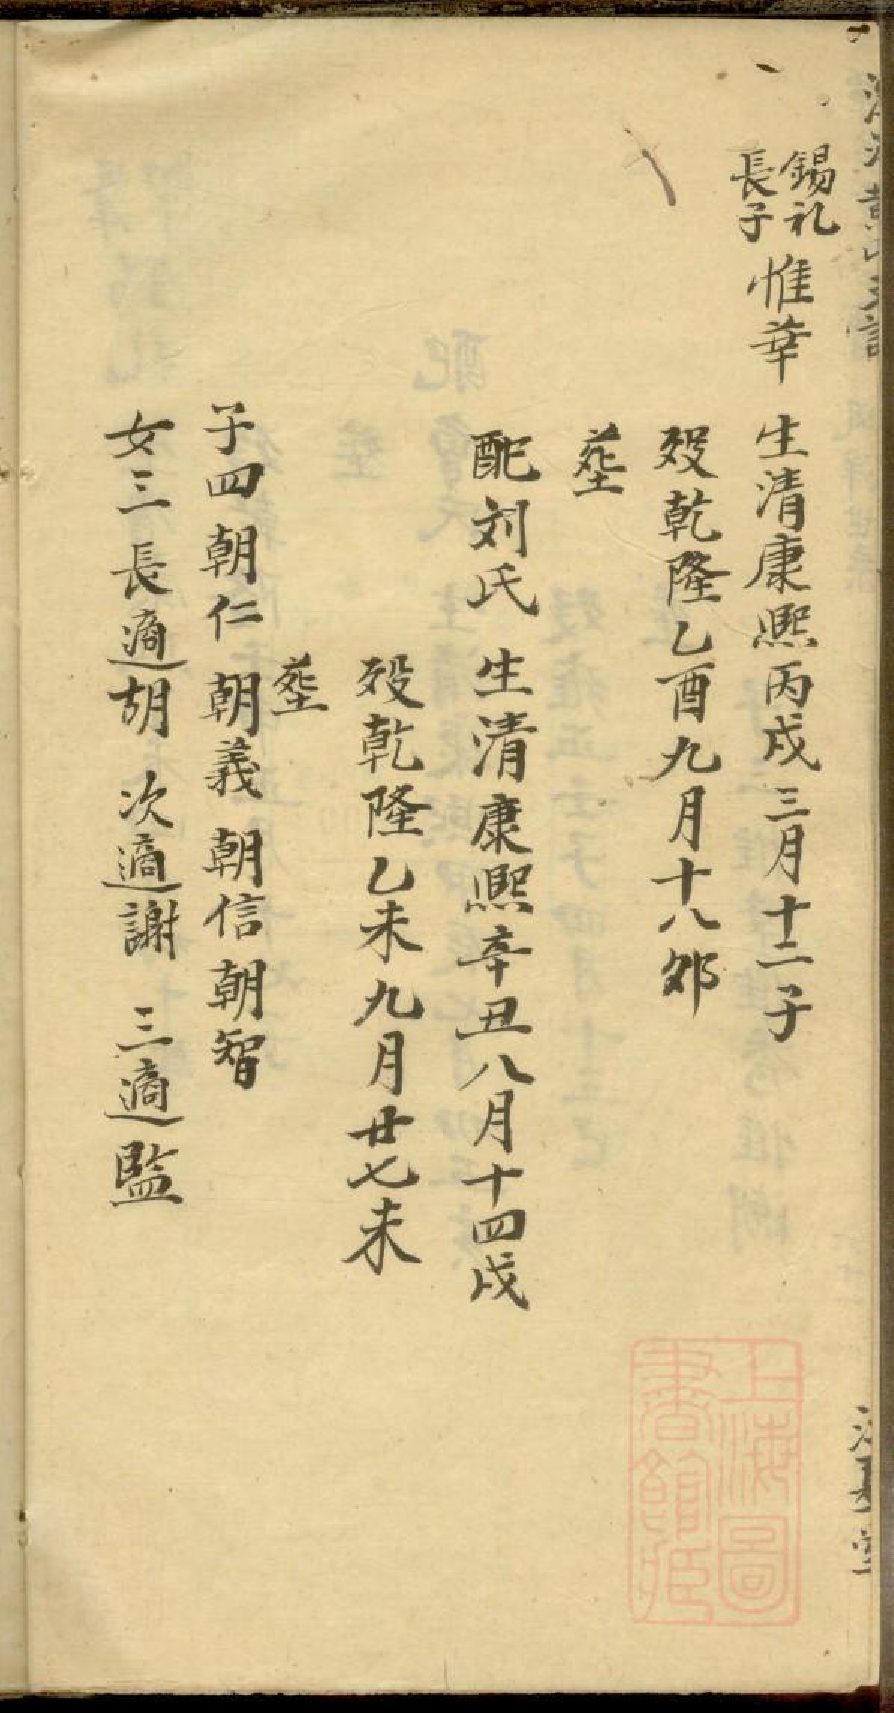 錫礼
長子
惟華 生清康熈丙戍三月十二子
殁乾隆乙酉九月十八夘
塟
配刘氏 生清康熈辛丑八月十四戍
殁乾隆乙未九月廿七未
塟
子四朝仁 朝義 朝信 朝智
女三 長適胡 次適謝 三適監
上海圖
書館藏